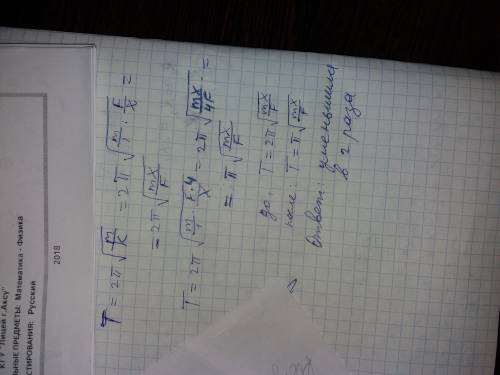 КГУ "Лицей г.Аксу"
ЛЬНЫЕ ПРЕДМЕТЫ: Математика - Физика
СТИРОВАНИЯ: Русский
2018
T = 2π√(m/K) = 2π√(m/1 · F/X) =
= 2π√(mX/F)
T = 2π√(m/1 · F·4/X) = 2π√(mX/4F) =
= π√(mX/F)
до: T = 2π√(mX/F)
после: T = π√(mX/F)
Ответ: уменьшила
в 2 раза